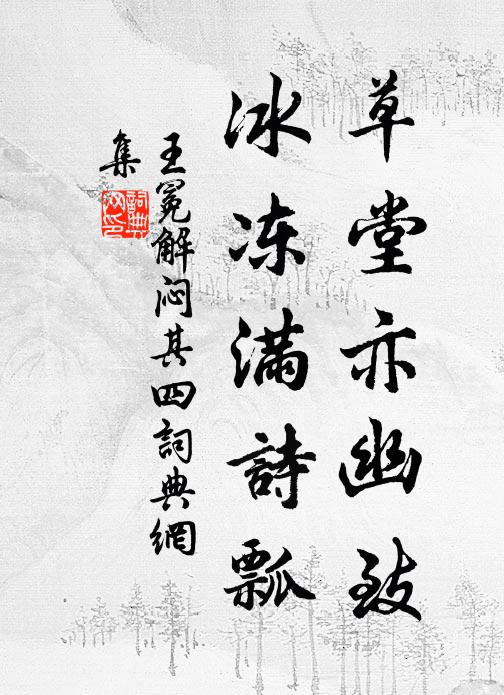 草堂亦幽致
冰冻满詩瓢
王冕解闷其四詞典網
集
詞典网印